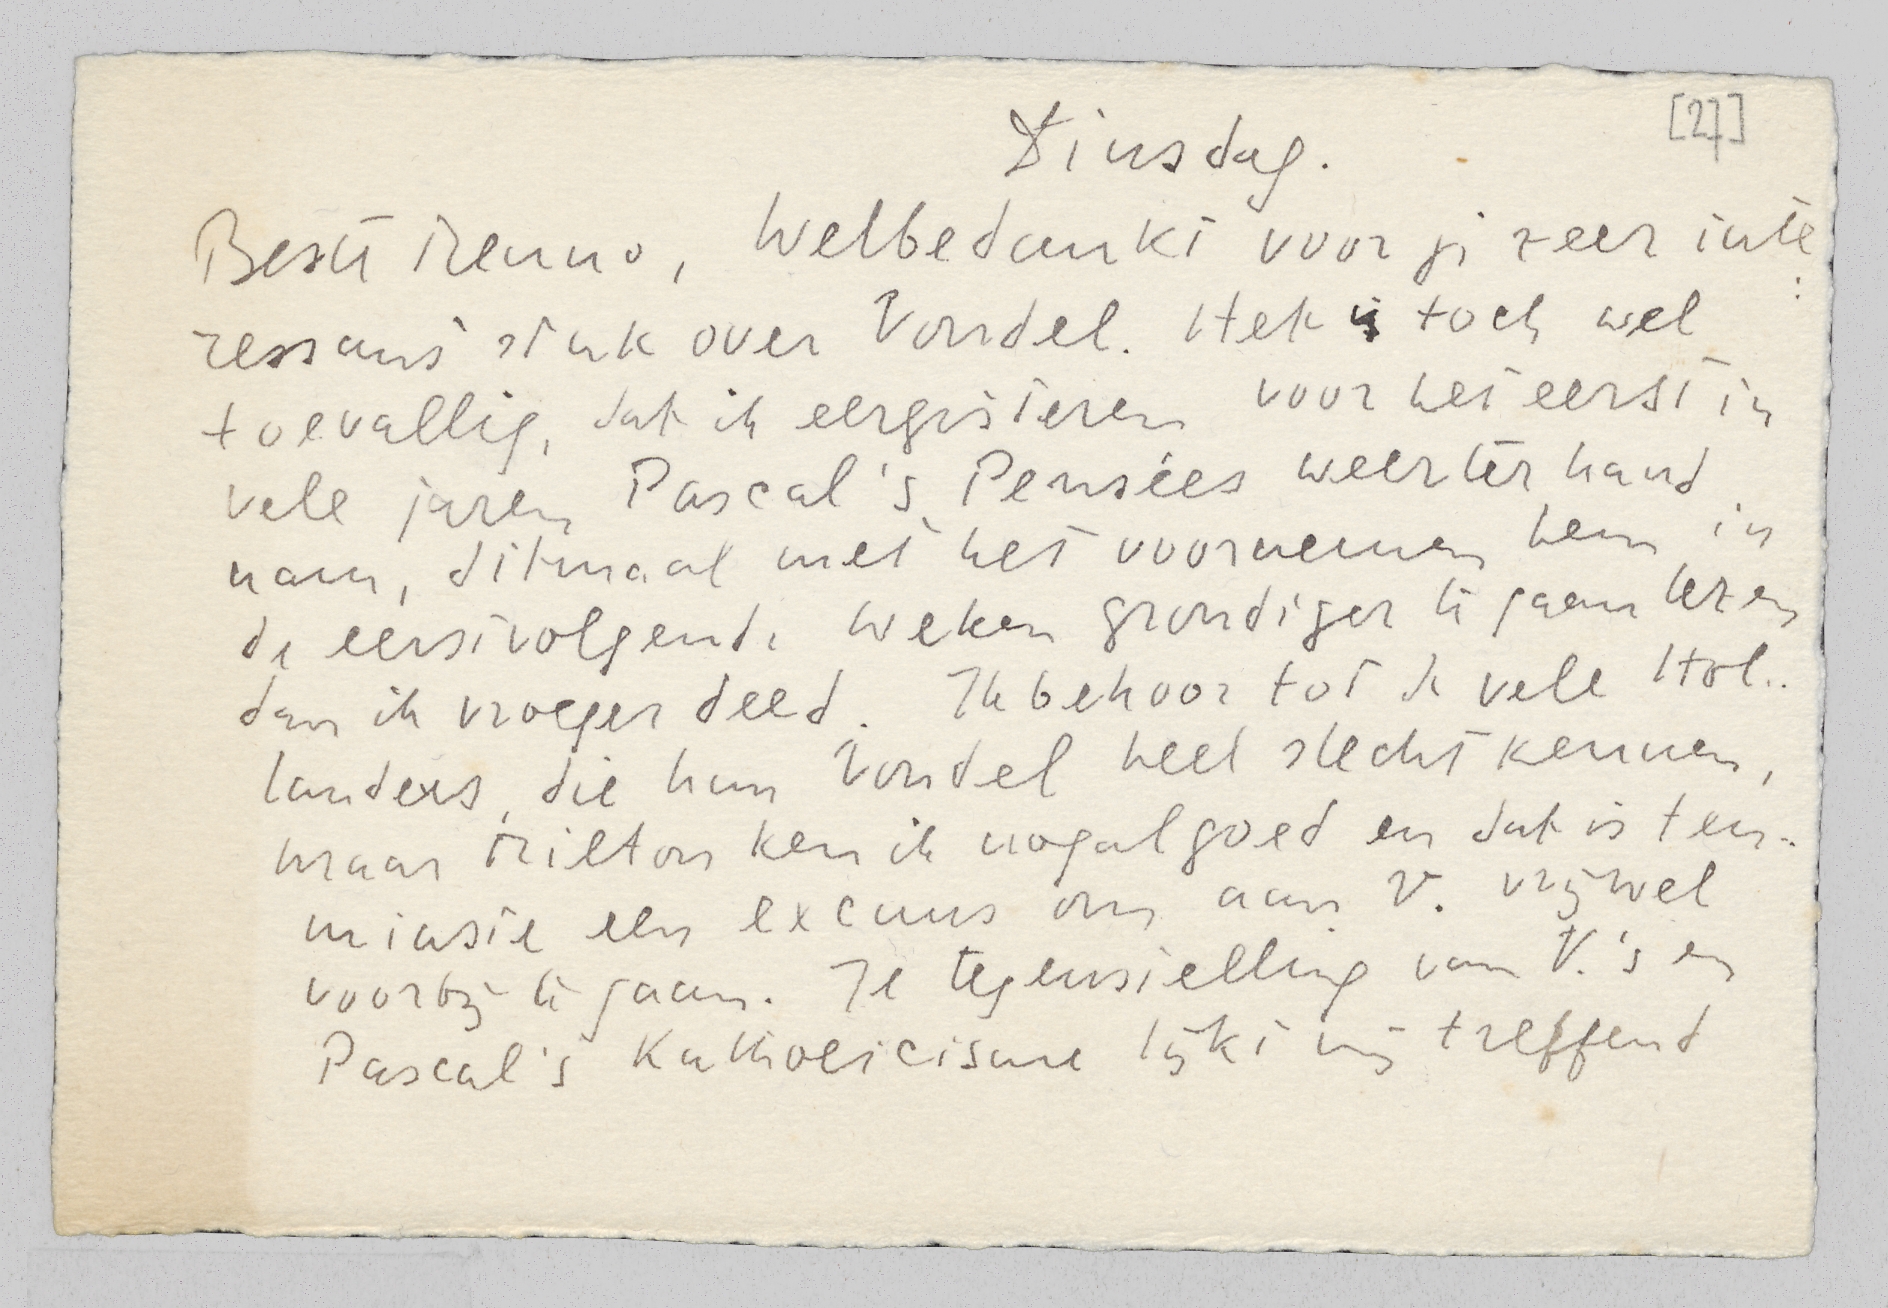 [27]
Dinsdag.
Beste Menno, Welbedankt voor je zeer inte
ressant stuk over Vondel. Het is toch wel
toevallig, dat ik eergisteren voor het eerst in
vele jaren Pascal's Pensées weer ter hand
nam, ditmaal met het voornemen hem in
de eerstvolgende weken grondiger te gaan lezen
dan ik vroeger deed. Ik behoor tot de vele Hol-
landers, die hun Vondel heel slecht kennen,
maar Milton ken ik nogal goed en dat is ten-
minste een excuus om aan V. vrijwel
voorbij te gaan. Je tegenstelling van V.'s en
Pascal's Katholicisme lijkt mij treffend